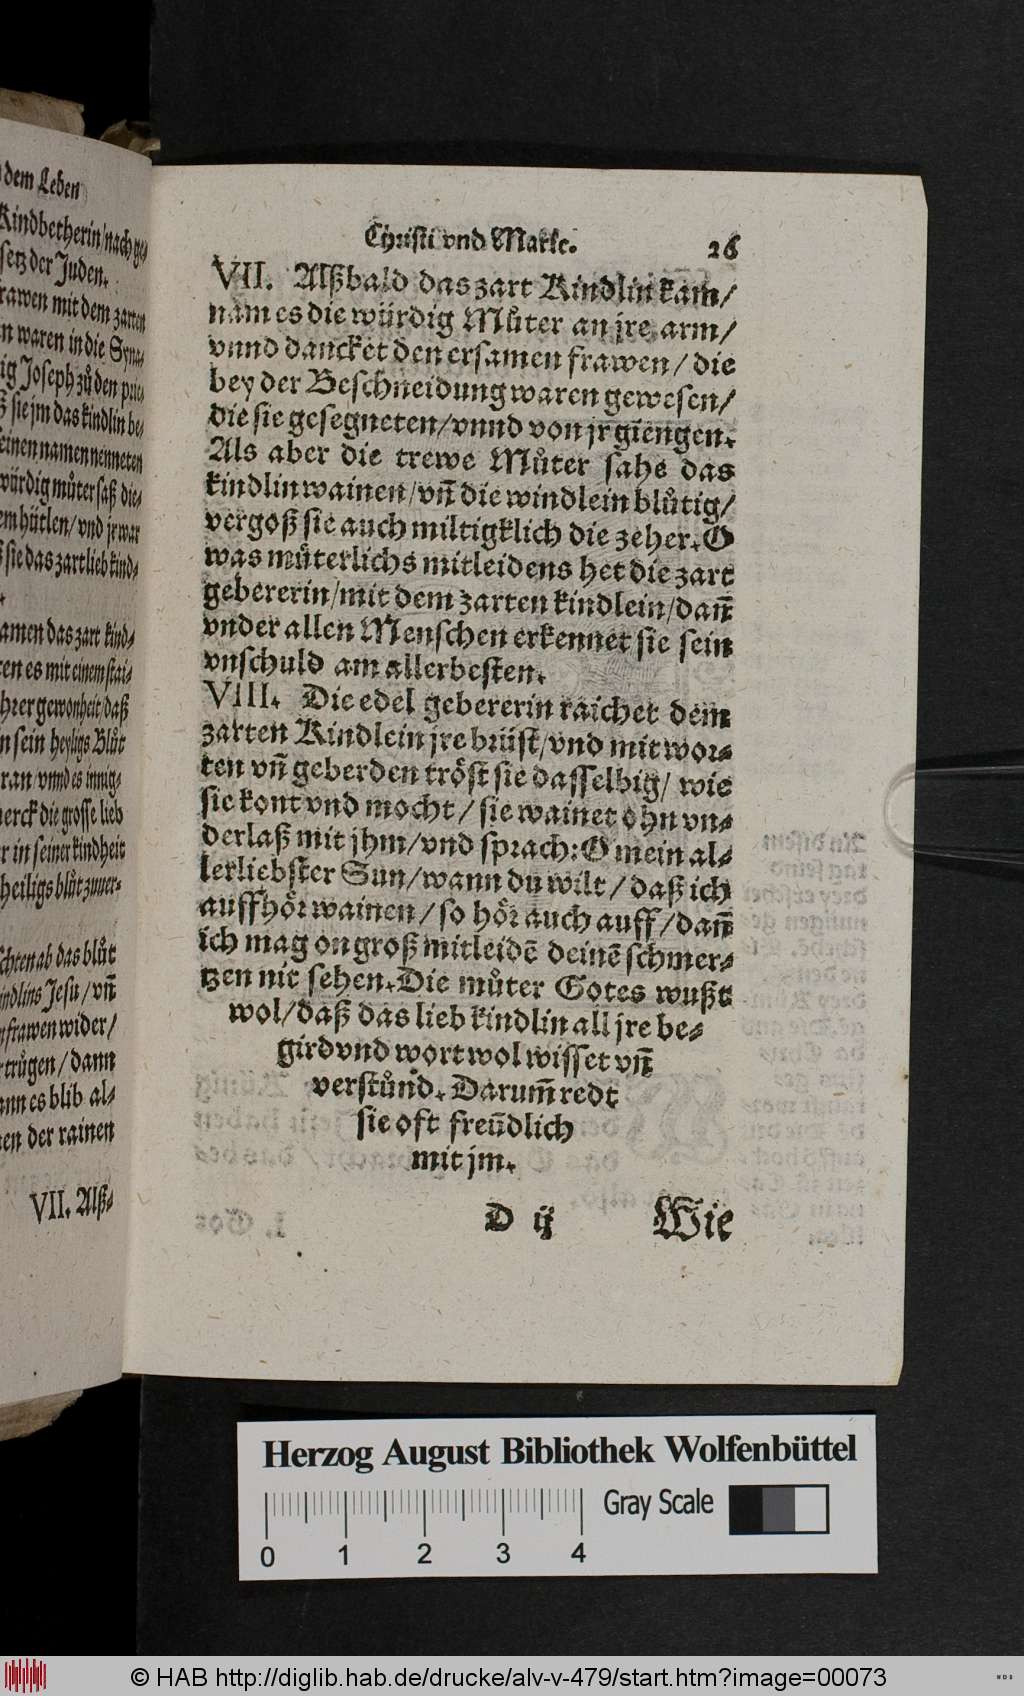 dem Leben
Kindbetherin/nach ge-
setz der Juden.
frawen mit dem zarten
waren in die Syna-
ig Joseph zů den prie-
sie jm das kindlin be-
einen namen nenneten
würdig můter saß die-
em hütlen/vnd jr war
sie das zart lieb kind-
amen das zart kind-
ren es mit einem stai-
hrer gewonheit/daß
sein heyligs Blůt
ran/vnnd es innig-
merck die grosse lieb
r in seiner kindheit
heiligs blůt zuuer-
chten ab das blůt
kindlins Jesu/vn̄
frawen wider/
trůgen/dann
ann es blib al-
en der rainen
VII. Alß-
Christi vnd Marie. 26
VII. Alßbald das zart Kindlin kam/
nam es die würdig Můter an jre arm/
vnnd dancket den ersamen frawen/ die
bey der Beschneidung waren gewesen/
die sie gesegneten/vnnd von jr giengen.
Als aber die trewe Můter sahe das
kindlin wainen/vn̄ die windlein blůtig/
vergoß sie auch miltigklich die zeher. O
was můterlichs mitleidens het die zart
gebererin/mit dem zarten kindlein/dan̄
vnder allen Menschen erkennet sie sein
vnschuld am allerbesten.
VIII. Die edel gebererin raichet dem
zarten Kindlein jre brüst/vnd mit wor-
ten vn̄ geberden tröst sie dasselbig/ wie
sie kont vnd mocht/ sie wainet ohn vn-
derlaß mit jhm/vnd sprach: O mein al-
lerliebster Sun/wann du wilt/ daß ich
auffhör wainen/so hör auch auff/dan̄
ich mag on groß mitleidē deinē schmer-
tzen nit sehen. Die můter Gotes wußt
wol/daß das lieb kindlin all jre be-
gird vnd wort wol wisset vn̄
verstůnd. Darum̄ redt
sie oft freūdlich
mit jm.
D ij Wie
Herzog August Bibliothek Wolfenbüttel
Gray Scale
0 1 2 3 4
© HAB http://diglib.hab.de/drucke/alv-v-479/start.htm?image=00073